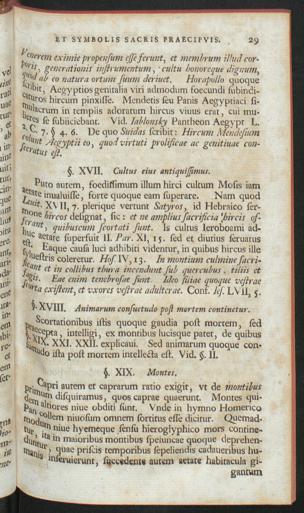 ET SYMBOLIS SACRIS PRAECIPVIS. 29
Venerem eximie propensum esse ferunt, et membrum illud cor-
poris, generationis instrumentum, cultu honoreque dignum,
quod ab eo natura ortum suum deriuet. Horapollo quoque
scribit, Aegyptios genitalia viri admodum foecundi subindi-
caturos hircum pinxisse. Mendetis seu Panis Aegyptiaci si-
mulacrum in templis adoratum hircus viuus erat, cui mu-
lieres se subiiciebant. Vid. Iablonsky Pantheon Aegypt L.
2. C. 7. § 4. 6. De quo Suidas scribit: Hircum Mendesium
colunt Aegyptii eo, quod virtuti prolificae ac genitiuae con-
secratus est.
§. XVII. Cultus eius antiquissimus.
Puto autem, foedissimum illum hirci cultum Mosis iam
aetate inualuisse, forte quoque eam superare. Nam quod
Leuit. XVII, 7. plerique vertunt Satyros, id Hebraico ser-
mone hircos designat, sic: et ne amplius sacrificia hircis of-
ferant, quibuscum scortati sunt. Is cultus Ieroboami ad-
huc aetate superfuit II. Par. XI, 15. sed et diutius seruatus
est. Eaque causa luci adhibiti videntur, in quibus hircus ille
syluestris coleretur. Hos. IV, 13. In montium culmine sacri-
ficant et in collibus thura incendunt sub quercubus, tiliis et
fagis. Eae enim tenebrosae sunt. Ideo filiae quoque vestrae
scorta existent, et vxores vestrae adulterae. Conf. Ies. LVII, 5.
§. XVIII. Animarum consuetudo post mortem continetur.
Scortationibus istis quoque gaudia post mortem, sed
praecepta, intelligi, ex montibus lucisque patet, de quibus
§. XIX. XXI. XXII. explicaui. Sed animarum quoque con-
suetudo ista post mortem intellecta est. Vid. §. II.
§. XIX. Montes.
Capri autem et caprarum ratio exigit, vt de montibus
primum disquiramus, quos caprae quaerunt. Montes qui-
dem altiores niue obditi sunt. Vnde in hymno Homerico
Pan collem niuosum omnem sortitus esse dicitur. Quemad-
modum niue hyemeque sensu hieroglyphico mors contine-
tur, ita in maioribus montibus speluncae quoque deprehen-
duntur, quae priscis temporibus sepeliendis cadaueribus hu-
manis inseruierunt, succedente autem aetate habitacula gi-
gantum